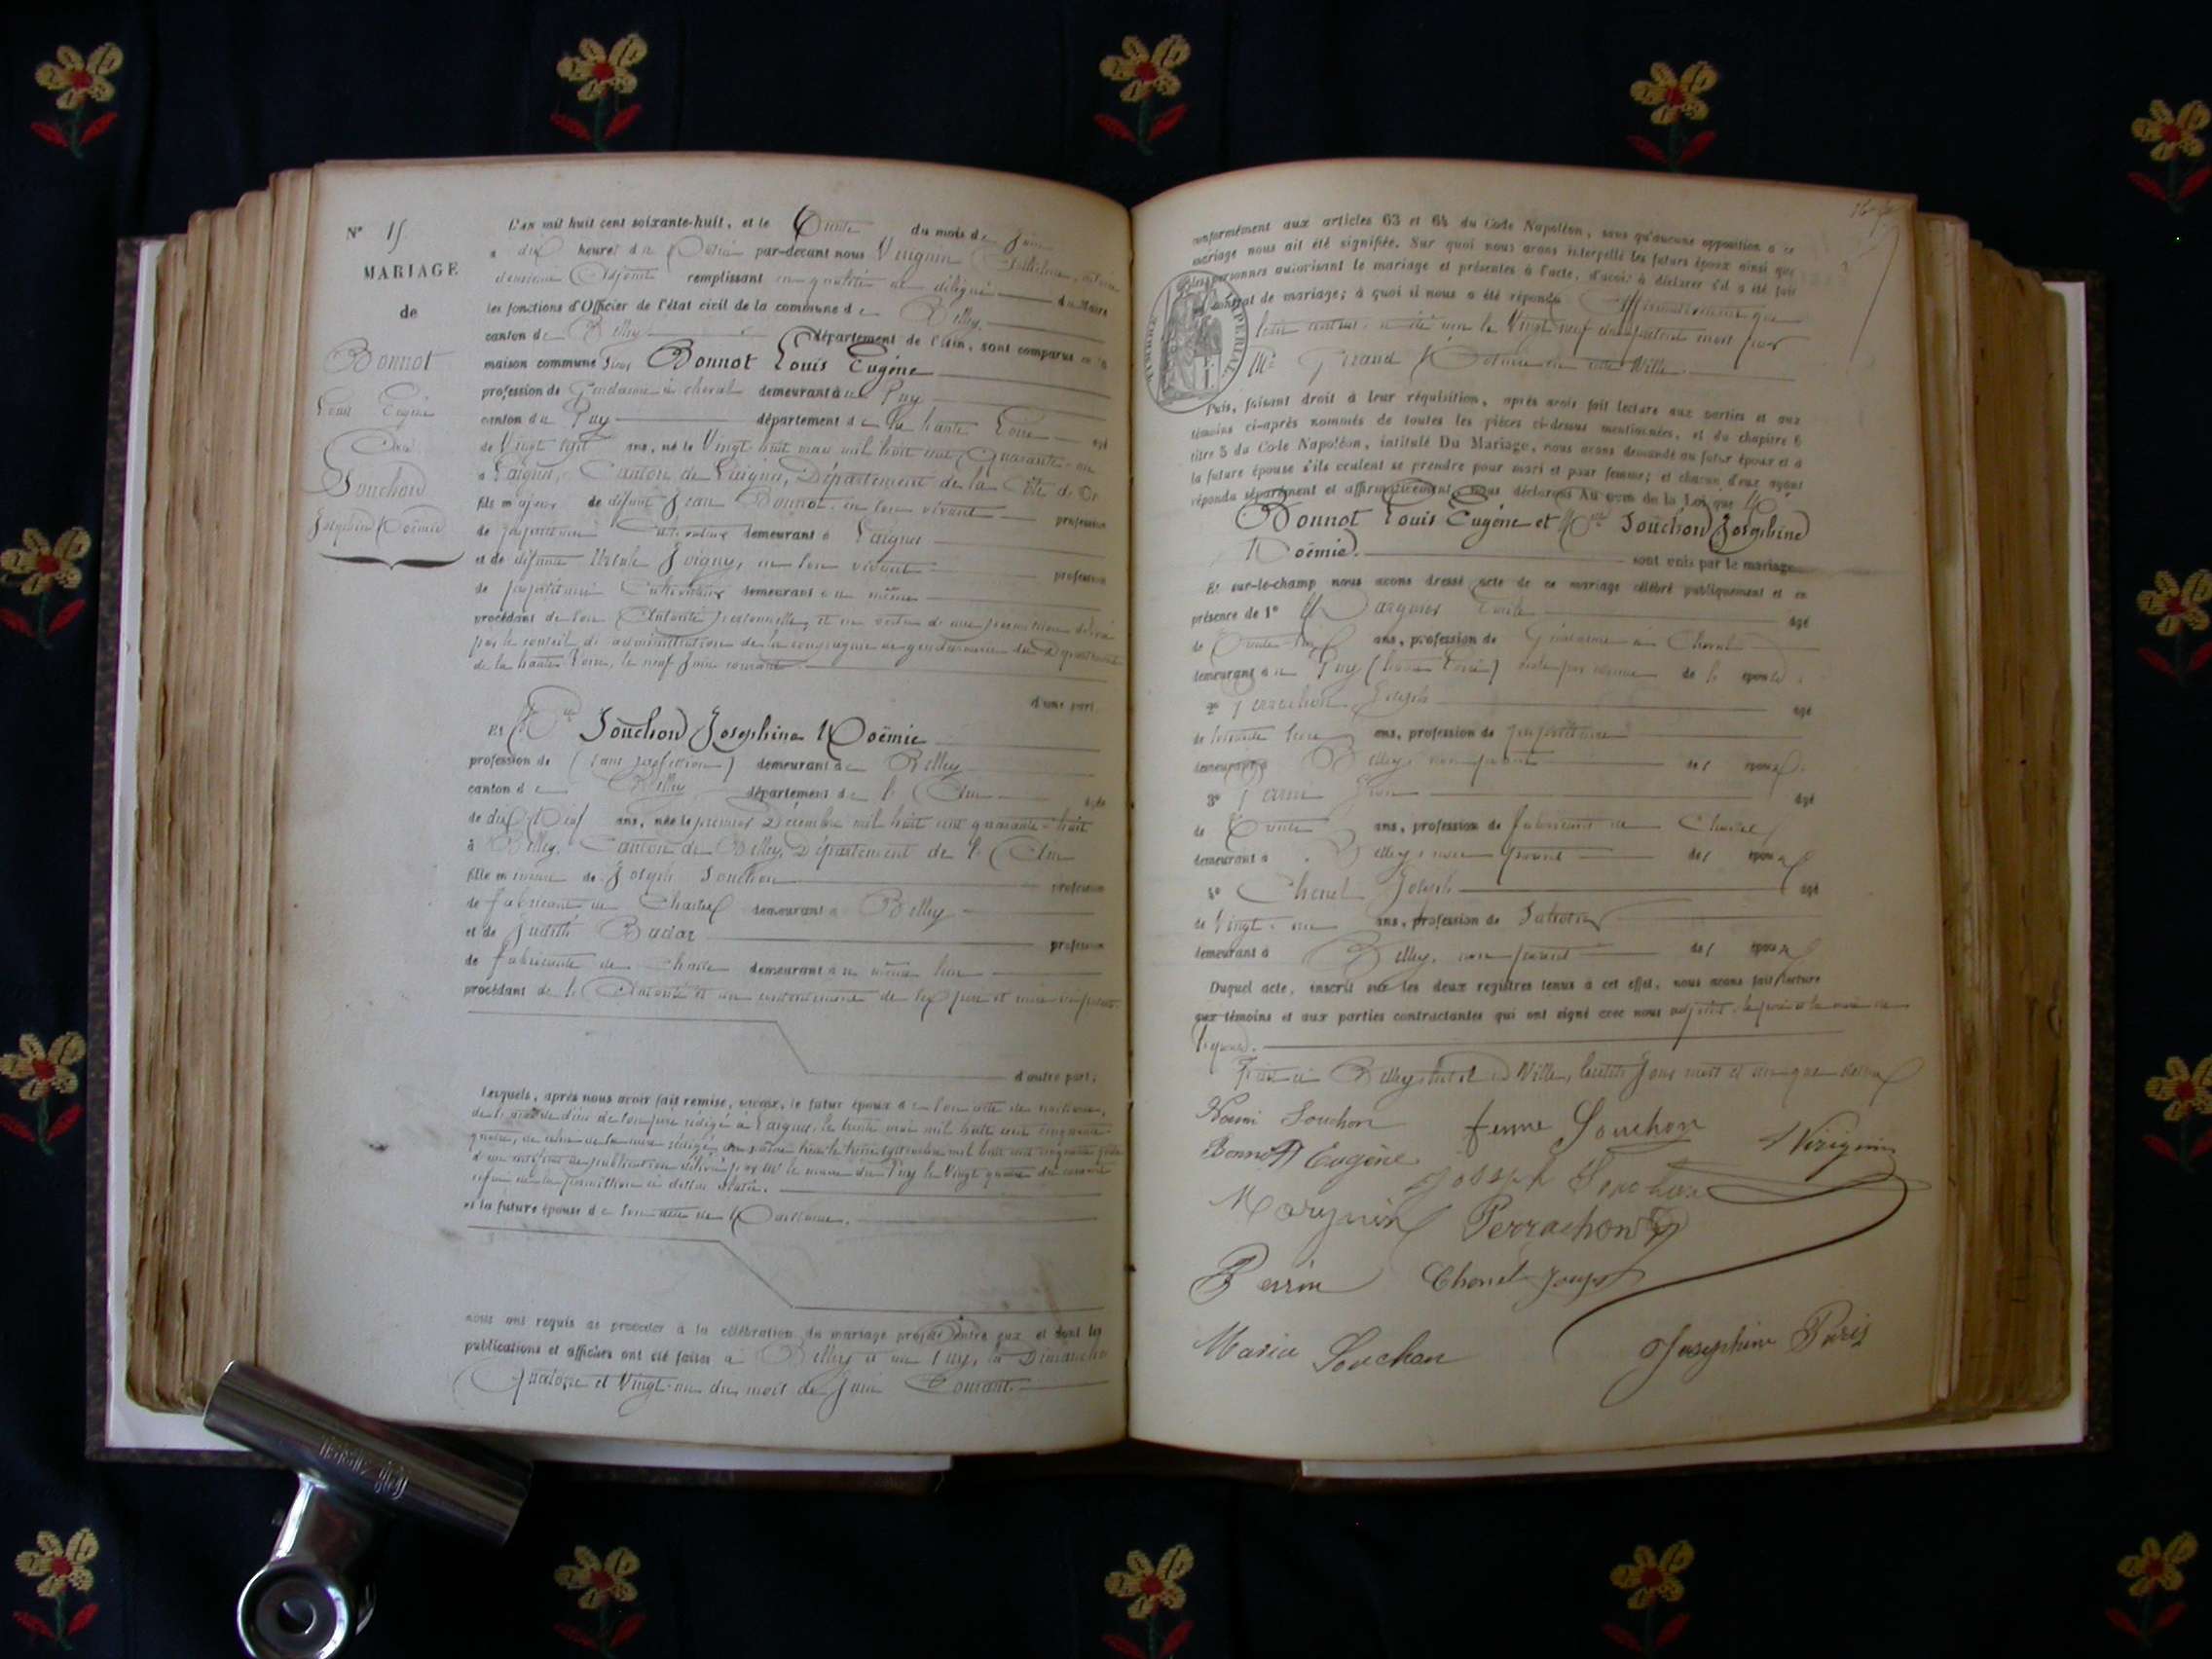 N° 15
MARIAGE
de
Bonnot
Louis Eugène
Et
Souchon
Joséphine Noëmie
L'an mil huit cent soixante-huit, et le Trente du mois de Juin
à dix heures du Matin par-devant nous
deuxième Adjoint remplissant en qualité de délégué du Maire
les fonctions d'Officier de l'état civil de la commune de Belley,
canton de Belley département de l'Ain, sont comparus en la
maison commune Sieur Bonnot Louis Eugène
profession de Gendarme à cheval demeurant à au Puy
canton du Puy département de la haute Loire âgé
de Vingt sept ans, né le Vingt huit mai mil huit cent Quarante-un
à Laignes, Canton de Laignes, Département de la Côte d'Or
fils majeur de défunt Jean Bonnot, en son vivant profession
de propriétaire Cultivateur demeurant à Laignes
et de défunte Ursule Joigny, en son vivant profession
de propriétaire Cultivateur demeurant au même
procédant de son Autorité personnelle, et en vertu de une permission délivrée
par le conseil de administration de la compagnie de gendarmerie du Département
de la haute Loire, le neuf Juin courant
d'une part.
Et Dlle Souchon Joséphine Noëmie
profession de (sans profession) demeurant à Belley
canton de Belley département de l'Ain âgée
de dix Neuf ans, née le premier Décembre mil huit cent quarante-huit
à Belley, Canton de Belley, Département de l'Ain
fille mineure de Joseph Souchon profession
de fabricant de Chaises demeurant à Belley
et de Judith profession
de fabricante de Chaises demeurant au même lieu
procédant de l'Autorité et du consentement de ses père et mère ici présents
d'autre part.
Lesquels, après nous avoir fait remise, savoir, le futur époux de son acte de naissance,
de l'acte de décès de son père rédigé à Laignes, le trente mai mil huit cent cinquante
quatre, de celui de sa mère rédigé au même lieu le treize septembre mil huit cent cinquante
d'un certificat de publication délivré par Mr le maire du Puy le Vingt quatre du courant
enfin de la permission ci dessus relatée.
et la future épouse de son acte de Naissance.
nous ont requis de procéder à la célébration du mariage projeté entre eux et dont les
publications et affiches ont été faites à Belley et au Puy, les Dimanches
Quatorze et Vingt-un du mois de Juin Courant
conformément aux articles 63 et 64 du Code Napoléon, sans qu'aucune opposition à ce
mariage nous ait été signifiée. Sur quoi nous avons interpellé les futurs époux ainsi que
les personnes autorisant le mariage et présentes à l'acte, d'avoir à déclarer s'il a été fait
contrat de mariage; à quoi il nous a été répondu Affirmativement que
leur contrat a été reçu le Vingt neuf du présent mois par
Me Notaire en cette Ville
TIMBRE IMPÉRIAL
Puis, faisant droit à leur réquisition, après avoir fait lecture aux parties et aux
témoins ci-après nommés de toutes les pièces ci-dessus mentionnées, et du chapitre 6
titre 5 du Code Napoléon, intitulé Du Mariage, nous avons demandé au futur époux et à
la future épouse s'ils veulent se prendre pour mari et pour femme; et chacun d'eux ayant
répondu séparément et affirmativement, nous déclarons Au nom de la Loi que Mr
Bonnot Louis Eugène et Dlle Souchon Joséphine
Noëmie. sont unis par le mariage.
Et sur-le-champ nous avons dressé acte de ce mariage célébré publiquement et en
présence de 1° Mr Margnin Emile âgé
de Trente ans, profession de Gendarme à Cheval
demeurant au Puy (haute Loire) de l'époux
2° Perrachon Joseph âgé
de soixante ans, profession de propriétaire
demeurant à Belley, non parent des époux.
3° Perrin âgé
de Trente ans, profession de fabricant de Chaises
demeurant à Belley, non parent des époux
4° Chenel Joseph âgé
de Vingt-un ans, profession de Sabotier
demeurant à Belley, non parent des époux
Duquel acte, inscrit sur les deux registres tenus à cet effet, nous avons fait lecture
aux témoins et aux parties contractantes qui ont signé avec nous
Fait à Belley, hôtel de Ville, lesdits Jour mois et an que dessus
Noemi Souchon femme Souchon
Bonnot Eugène Joseph Souchon
Margnin Perrachon
Perrin Chenel Joseph
Maria Souchon Josephine Paris